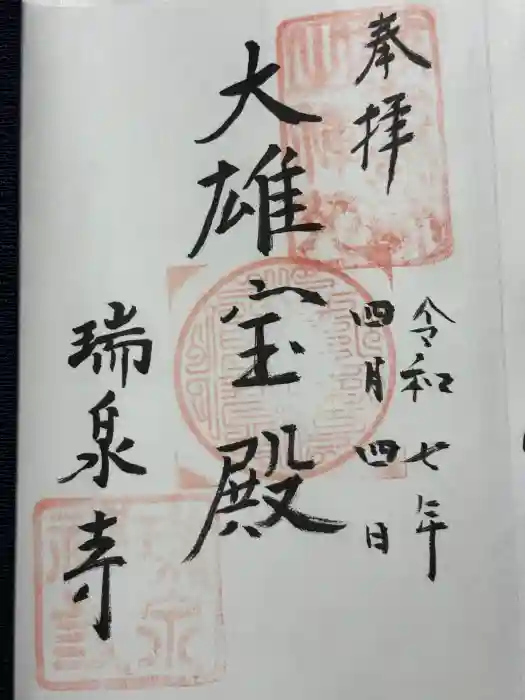 奉拝
令和七年
四月四日
大雄宝殿
瑞泉寺